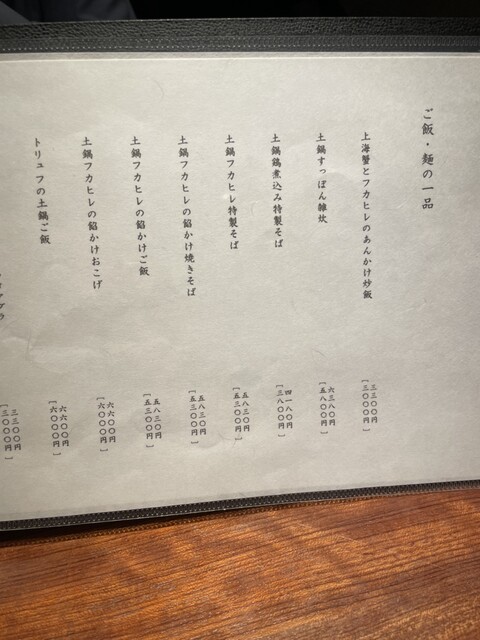 ご飯・麺の一品
上海蟹とフカヒレのあんかけ炒飯
三三〇〇円
[三〇〇〇円]
土鍋すっぽん雑炊
六三八〇円
[五八〇〇円]
土鍋鶏煮込み特製そば
四一八〇円
[三八〇〇円]
土鍋フカヒレ特製そば
五八三〇円
[五三〇〇円]
土鍋フカヒレの餡かけ焼きそば
五八三〇円
[五三〇〇円]
土鍋フカヒレの餡かけご飯
五八三〇円
[五三〇〇円]
土鍋フカヒレの餡かけおこげ
六六〇〇円
[六〇〇〇円]
トリュフの土鍋ご飯
六六〇〇円
[六〇〇〇円]
三三〇〇〇円
[三〇〇〇〇円]